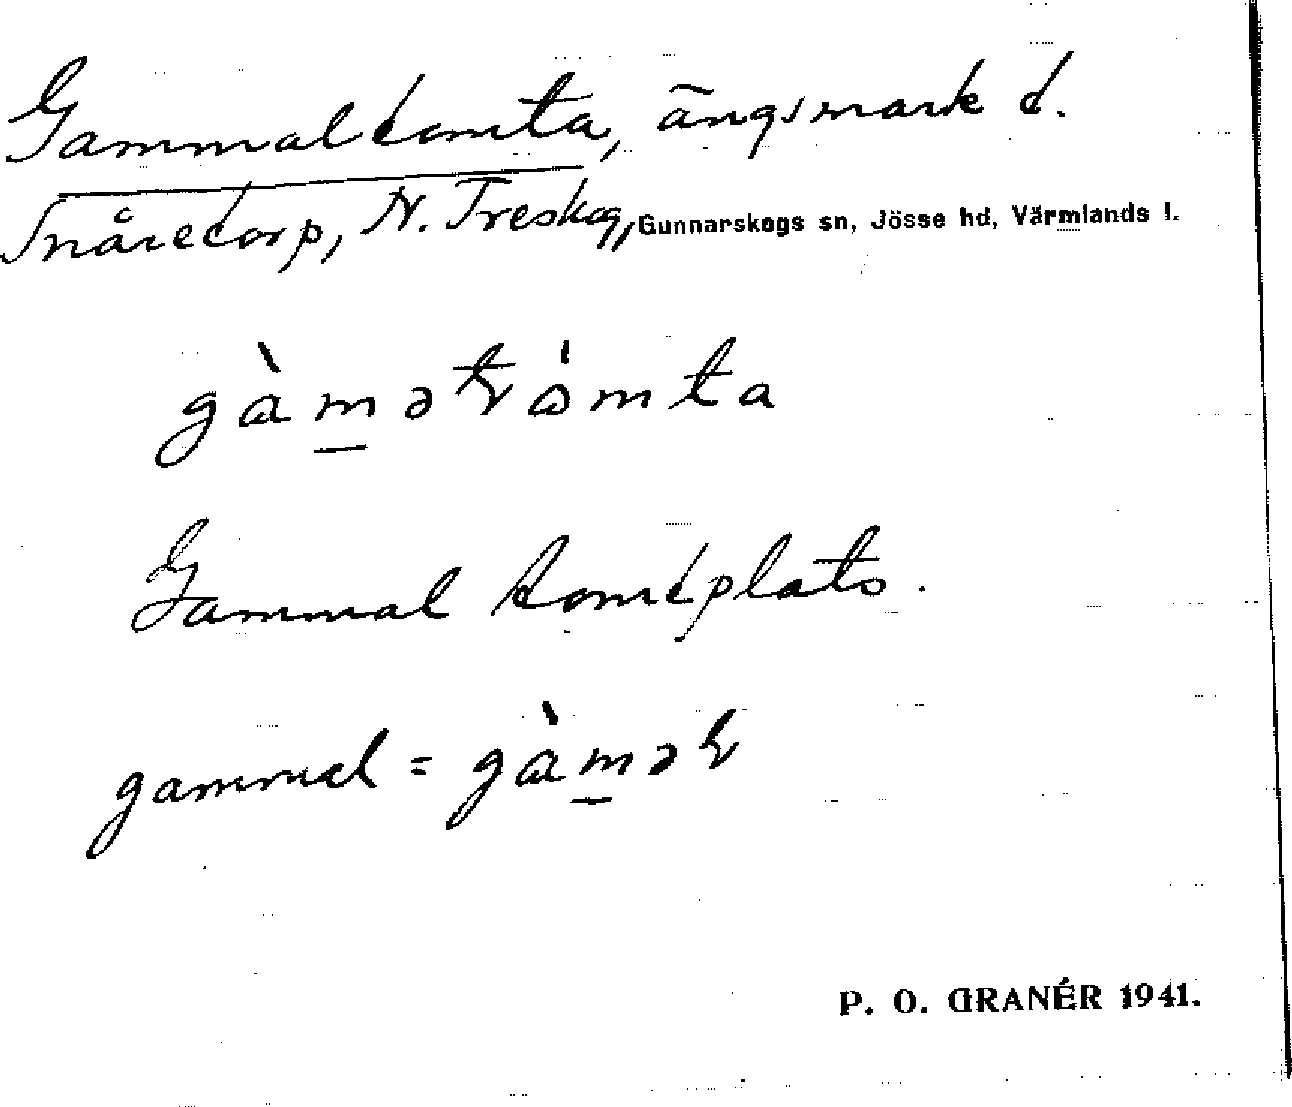 Gammaltomta, ängsmark t.
Snåretorp, N. Treskog, Gunnarskogs sn, Jösse hd, Värmlands l.
gàmətɽómta
Gammal tomtplats.
gammal = gàməɽ
P. O. GRANÉR 1941.